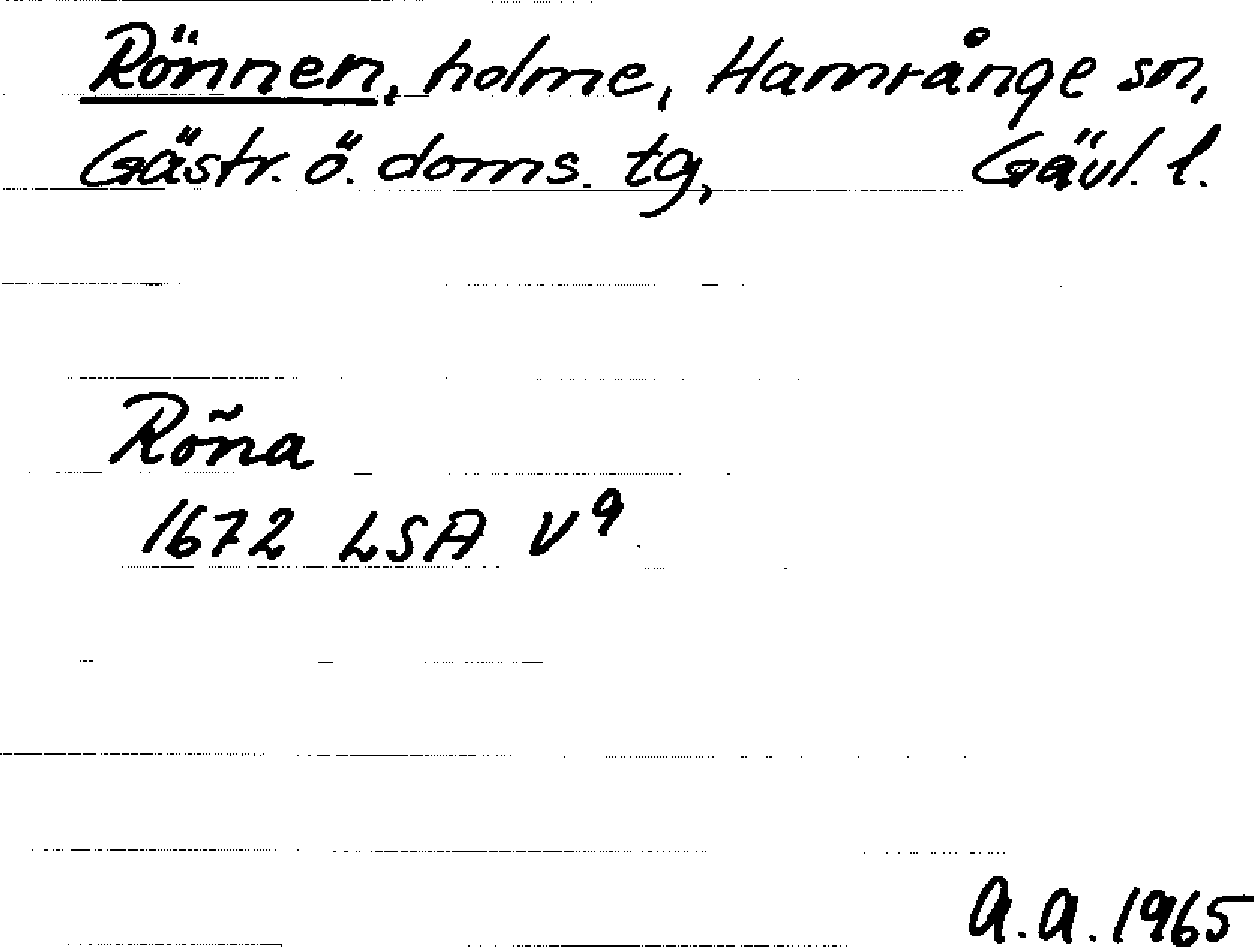 Rönnen, holme, Hamrånge sn,
Gästr. ö. doms. tg, Gävl. l.
Rön̄a
1672 LSA V⁹
A.A. 1965